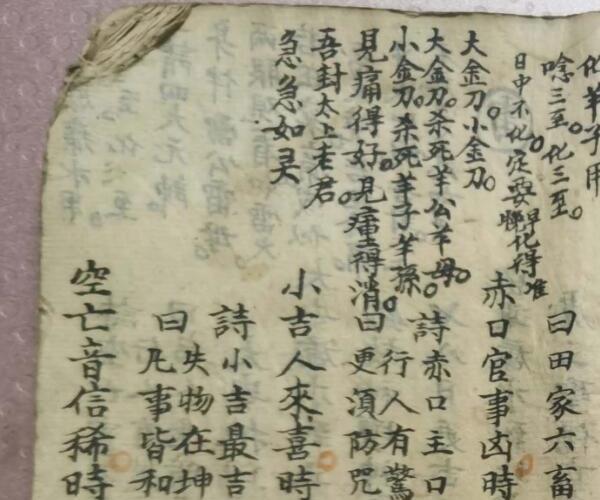 化羊子用
唸三至。化三至。
日中不化定要早化得准
大金刀。小金刀。
大金刀。杀死羊公羊母。
小金刀。杀死羊子羊孫。
見痛得好。見瘇得消。
吾封太上老君
急急如灵
曰田家六畜
赤口官事凶時
詩赤口主口
行人有驚
曰更湏防咒
小吉人來喜時
詩小吉最吉
失物在坤
曰凡事皆和
空亡音信稀時